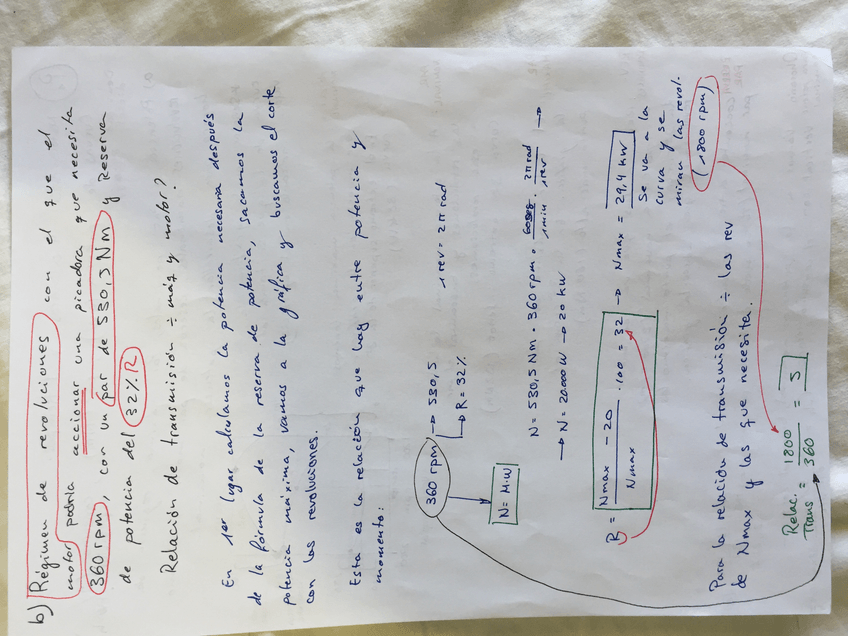 b) Régimen de revoluciones con el que el
motor podría accionar una picadora que necesita
360 rpm, con un par de 530,5 Nm y Reserva
de potencia del 32% R
Relación de transmisión ÷ máq y motor?
En 1er lugar calculamos la potencia necesaria después
de la fórmula de la reserva de potencia, sacamos la
potencia máxima, vamos a la gráfica y buscamos el corte
con las revoluciones.
Esta es la relación que hay entre potencia y
momento:
360 rpm → 530,5
→ R = 32%
1 rev = 2π rad
N = M·W
N = 530,5 Nm · 360 rpm · 60seg / 1 min · 2π rad / 1 rev →
→ N = 20000 W → 20 kW
R = Nmax - 20 / Nmax · 100 = 32 → Nmax = 29,4 kW
Se va a la
curva y se
miran las revol.
(1800 rpm)
Para la relación de transmisión ÷ las rev
de Nmax y las que necesita.
Relac. Trans = 1800 / 360 = 5